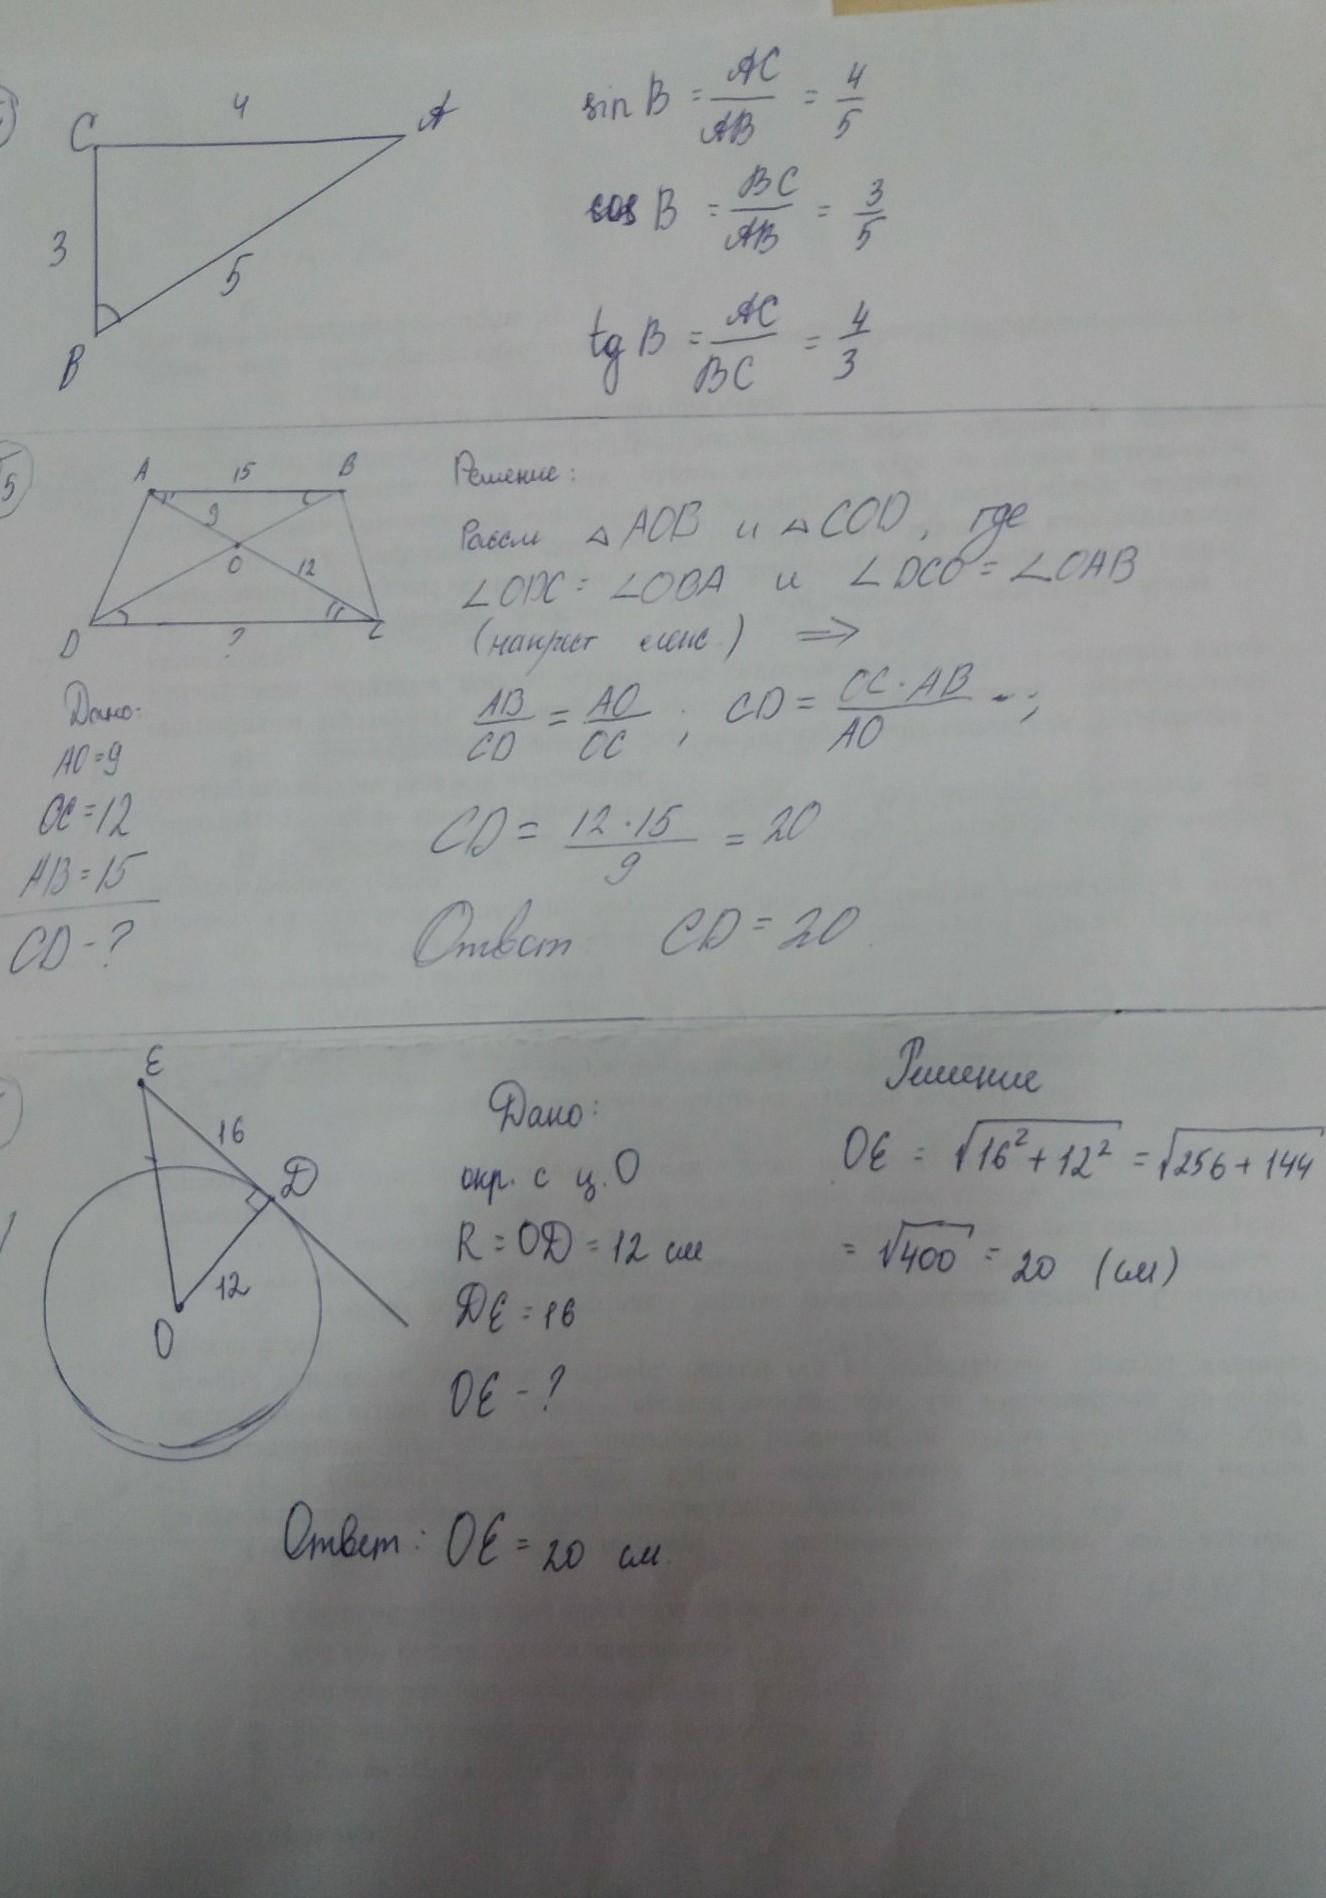 C 4 A
3
5
B
sin B = AC/AB = 4/5
cos B = BC/AB = 3/5
tg B = AC/BC = 4/3
5
A 15 B
9
O 12
D ? C
Решение:
Рассм △AOB и △COD, где
∠ODC = ∠OBA и ∠DCO = ∠OAB
(накрест лежс.) ⇒
AB/CD = AO/OC ; CD = OC·AB/AO ;
CD = 12·15/9 = 20
Ответ CD = 20.
Дано:
AO=9
OC=12
AB=15
CD-?
E
16
D
12
O
Дано:
окр. с ц. O
R = OD = 12 см
DE = 16
OE - ?
Решение
OE = √16²+12² = √256+144
= √400 = 20 (см)
Ответ: OE = 20 см.